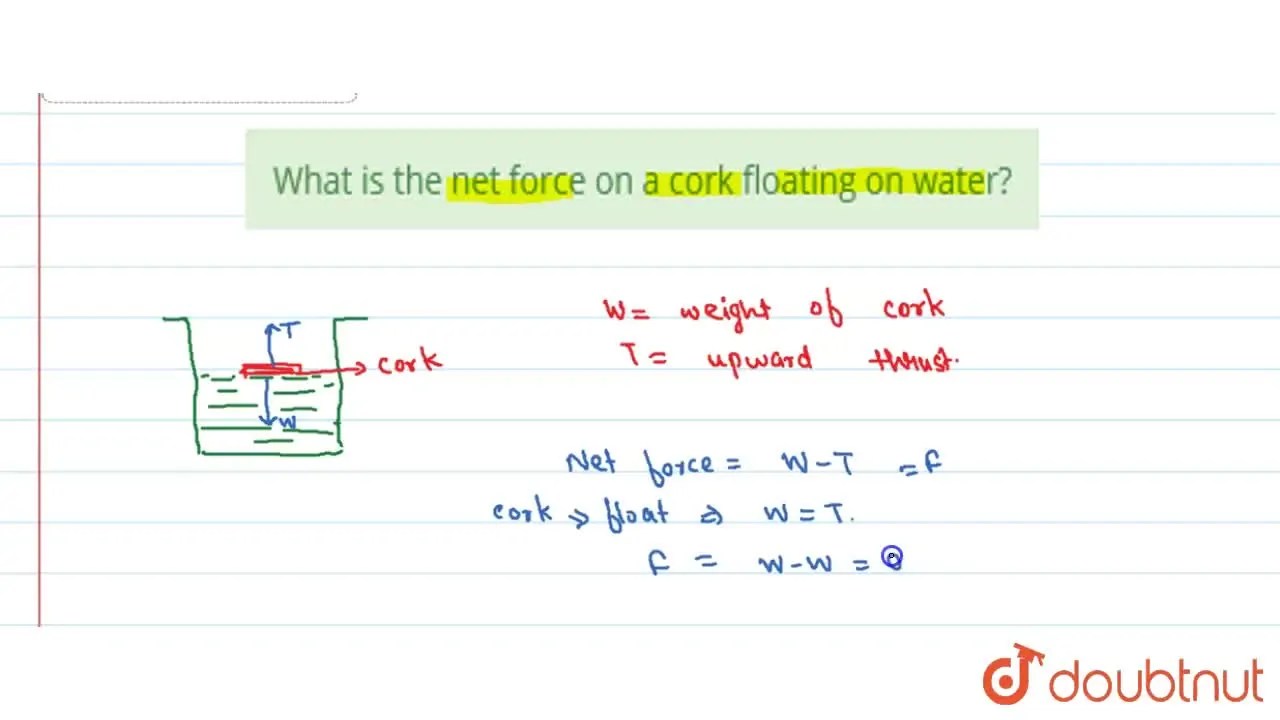 What is the net force on a cork floating on water?
T
cork
W
W = weight of cork
T = upward thrust.
Net force = W - T = F
cork → float ⇒ W = T.
F = W - W = 0
doubtnut